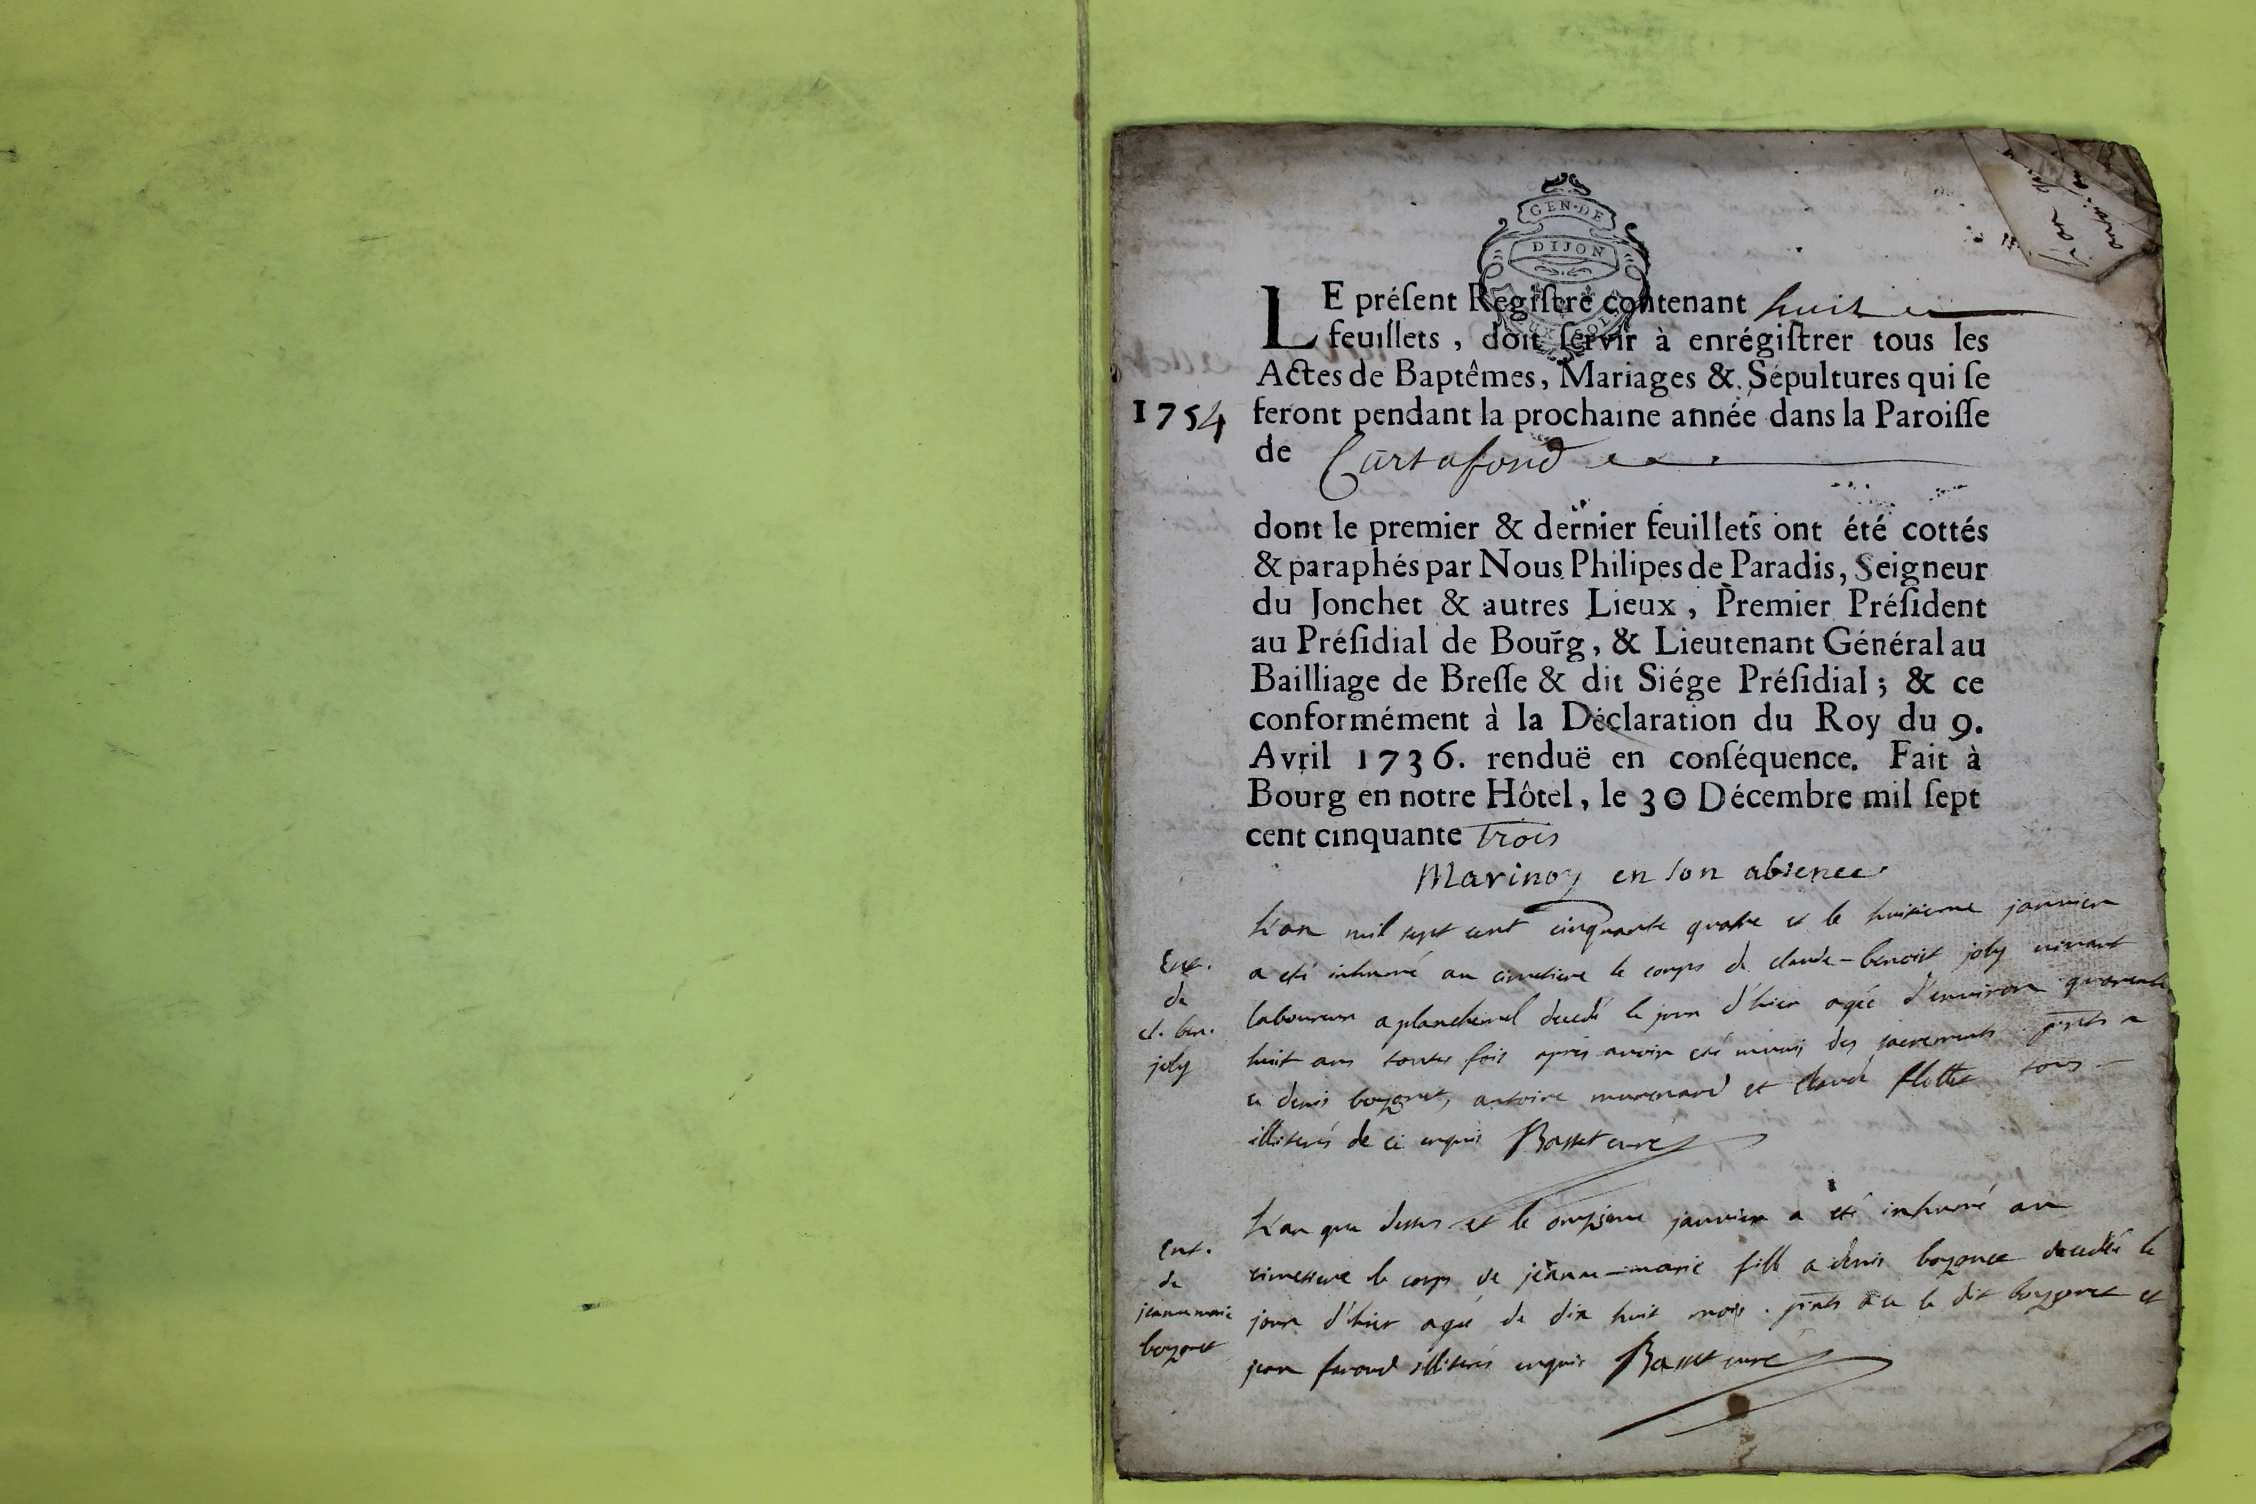 GEN·DE
DIJON
LE préſent Regiſtre contenant huit
feuillets, doit ſervir à enrégiſtrer tous les
Actes de Baptêmes, Mariages & Sépultures qui ſe
1754 feront pendant la prochaine année dans la Paroiſſe
de Curtafond
dont le premier & dernier feuillets ont été cottés
& paraphés par Nous Philipes de Paradis, Seigneur
du Jonchet & autres Lieux, Premier Préſident
au Préſidial de Bourg, & Lieutenant Général au
Bailliage de Breſſe & dit Siége Préſidial; & ce
conformément à la Déclaration du Roy du 9.
Avril 1736. renduë en conſéquence. Fait à
Bourg en notre Hôtel, le 30 Décembre mil ſept
cent cinquante trois
Marinoy en son absence
L'an mil sept cent cinquante quatre et le huitieme janvier
Ent.
de
cl. ben.
joly
a eté inhumé au cimetiere le corps de claude-benoist joly vivant
laboureur a decedé le jour d'hier agée d'environ quarente
huit ans toutes fois apres avoir eté muni des sacrements pnts a
ce denis bozonet, antoine et claude tous
illiterés de ce enquis Basset curé
Ent.
de
jeanne marie
bozonet
L'an que dessus et le onzieme janvier a eté inhumé au
cimetiere le corps de jeanne-marie fille a denis bozonet decedée le
jour d'hier agée de dix huit mois. pnts a ce le dit bozonet et
jean favond illiterés enquis Basset curé